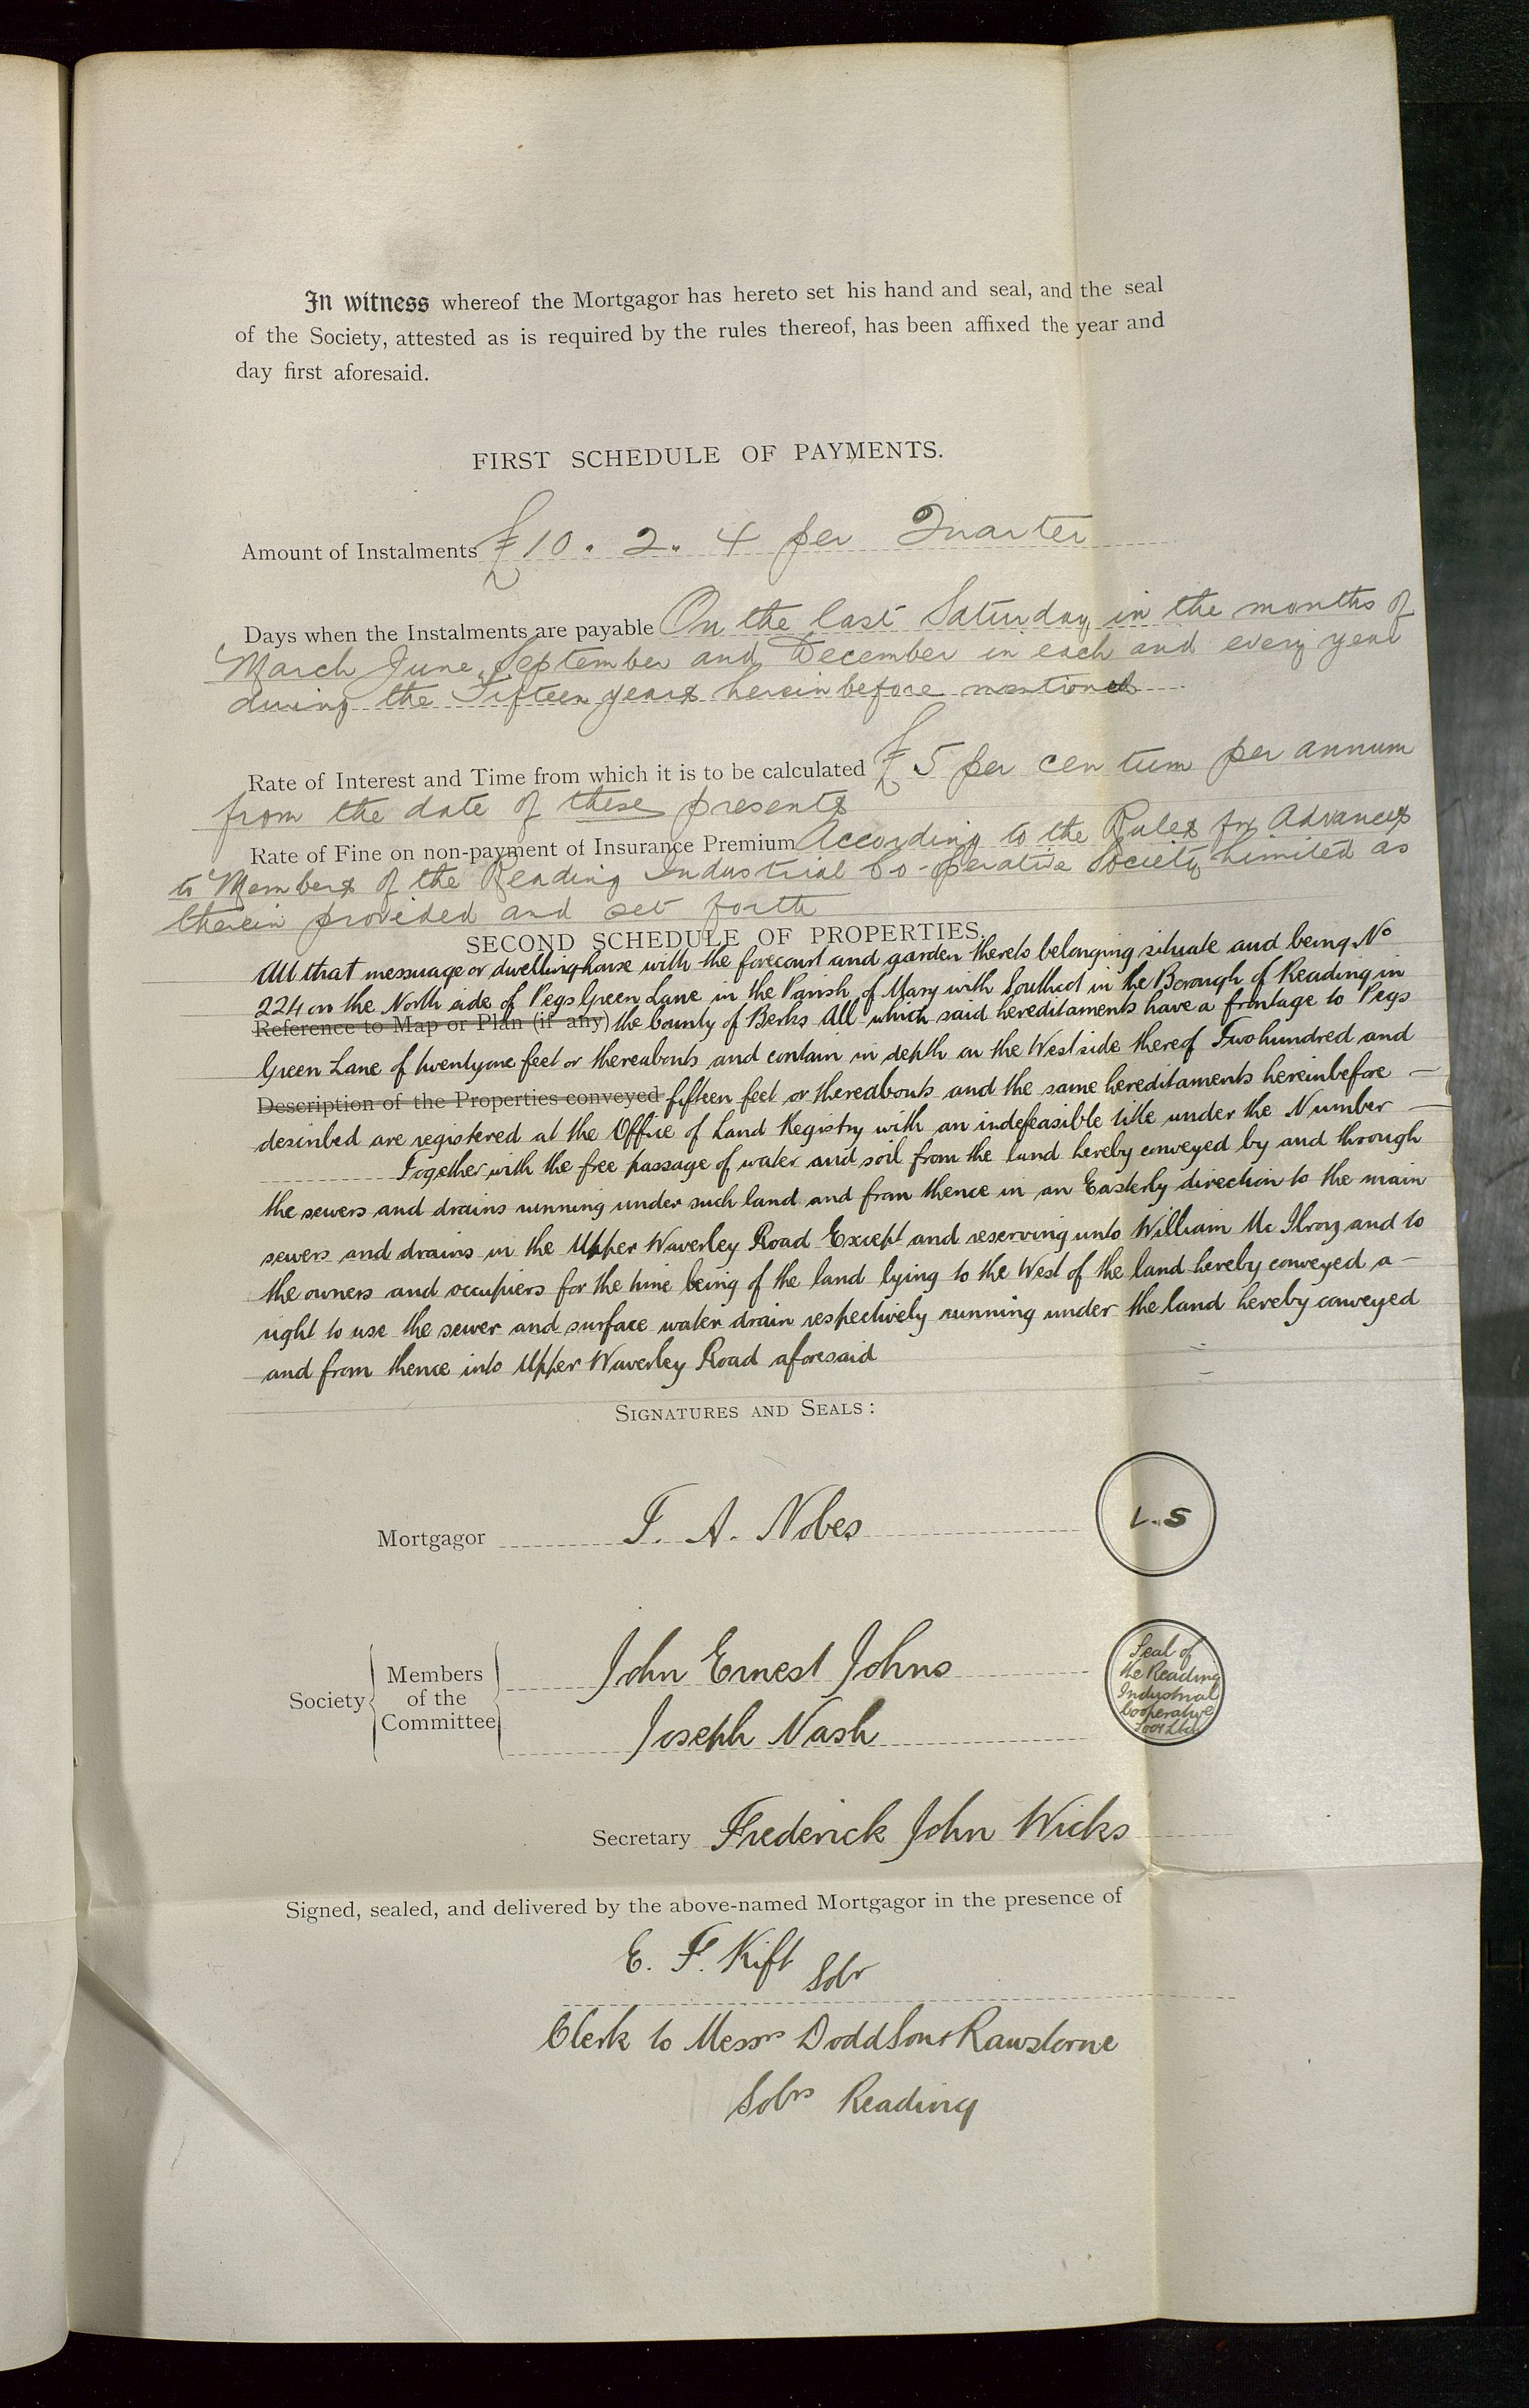 In witness whereof the Mortgagor has hereto set his hand and seal, and the seal
of the Society, attested as is required by the rules thereof, has been affixed the year and
day first aforesaid.
FIRST SCHEDULE OF PAYMENTS.
Amount of Instalments £10. 2. 4 per Quarter
Days when the Instalments are payable On the last Saturday in the months of
March June September and December in each and every year
during the Fifteen years hereinbefore mentioned
Rate of Interest and Time from which it is to be calculated £5 per centum per annum
from the date of these presents
Rate of Fine on non-payment of Insurance Premium According to the Rules for Advances
to Members of the Reading Industrial Co-operative Society Limited as
therein provided and set forth
SECOND SCHEDULE OF PROPERTIES.
All that messuage or dwellinghouse with the forecourt and garden thereto belonging situate and being No
224 on the North side of Pegs Green Lane in the Parish of Mary with Southcot in the Borough of Reading in
Reference to Map or Plan (if any) the County of Berks All which said hereditaments have a frontage to Pegs
Green Lane of twentyone feet or thereabouts and contain in depth on the West side thereof Two hundred and
Description of the Properties conveyed fifteen feet or thereabouts and the same hereditaments hereinbefore —
described are registered at the Office of Land Registry with an indefeasible title under the Number —
Together with the free passage of water and soil from the land hereby conveyed by and through
the sewers and drains running under such land and from thence in an Easterly direction to the main
sewers and drains in the Upper Waverley Road Except and reserving unto William Mc Ilroy and to
the owners and occupiers for the time being of the land lying to the West of the land hereby conveyed a —
right to use the sewer and surface water drain respectively running under the land hereby conveyed
and from thence into Upper Waverley Road aforesaid
SIGNATURES AND SEALS:
Mortgagor F. A. Nobes
L.S
Society Members of the Committee
John Ernest Johns
Joseph Nash
Seal of
the Reading
Industrial
Cooperative
Socy Ltd
Secretary Frederick John Wicks
Signed, sealed, and delivered by the above-named Mortgagor in the presence of
E. F. Kift Solr
Clerk to Messrs Dodd Son & Rawstorne
Solrs Reading